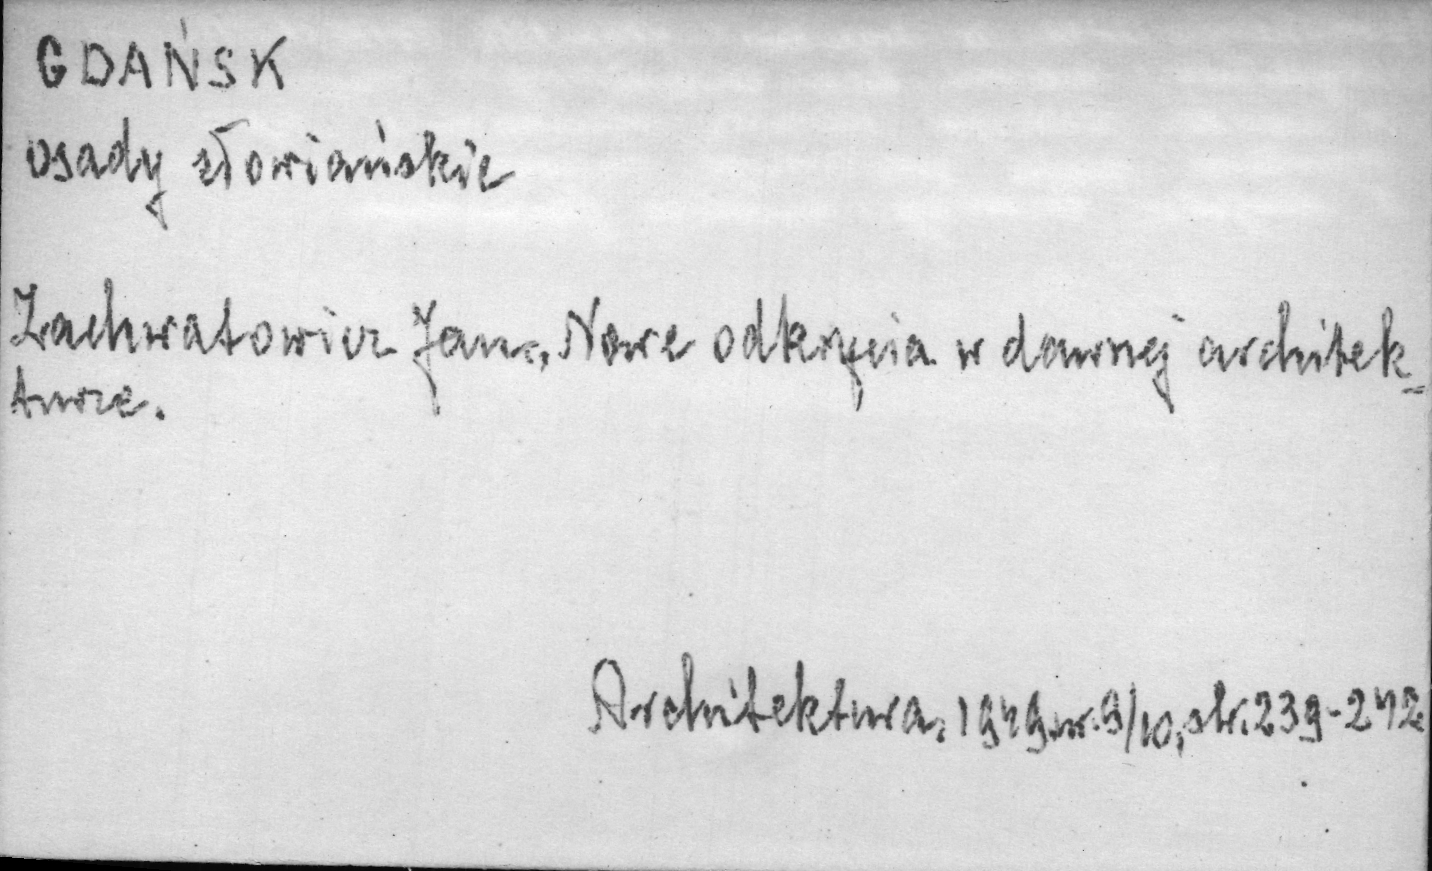 GDAŃSK
osady słowiańskie
Zachwatowicz Jan., Nowe odkrycia w dawnej architek-
turze.
Architektura, 1949, nr. 9/10, str. 239-242